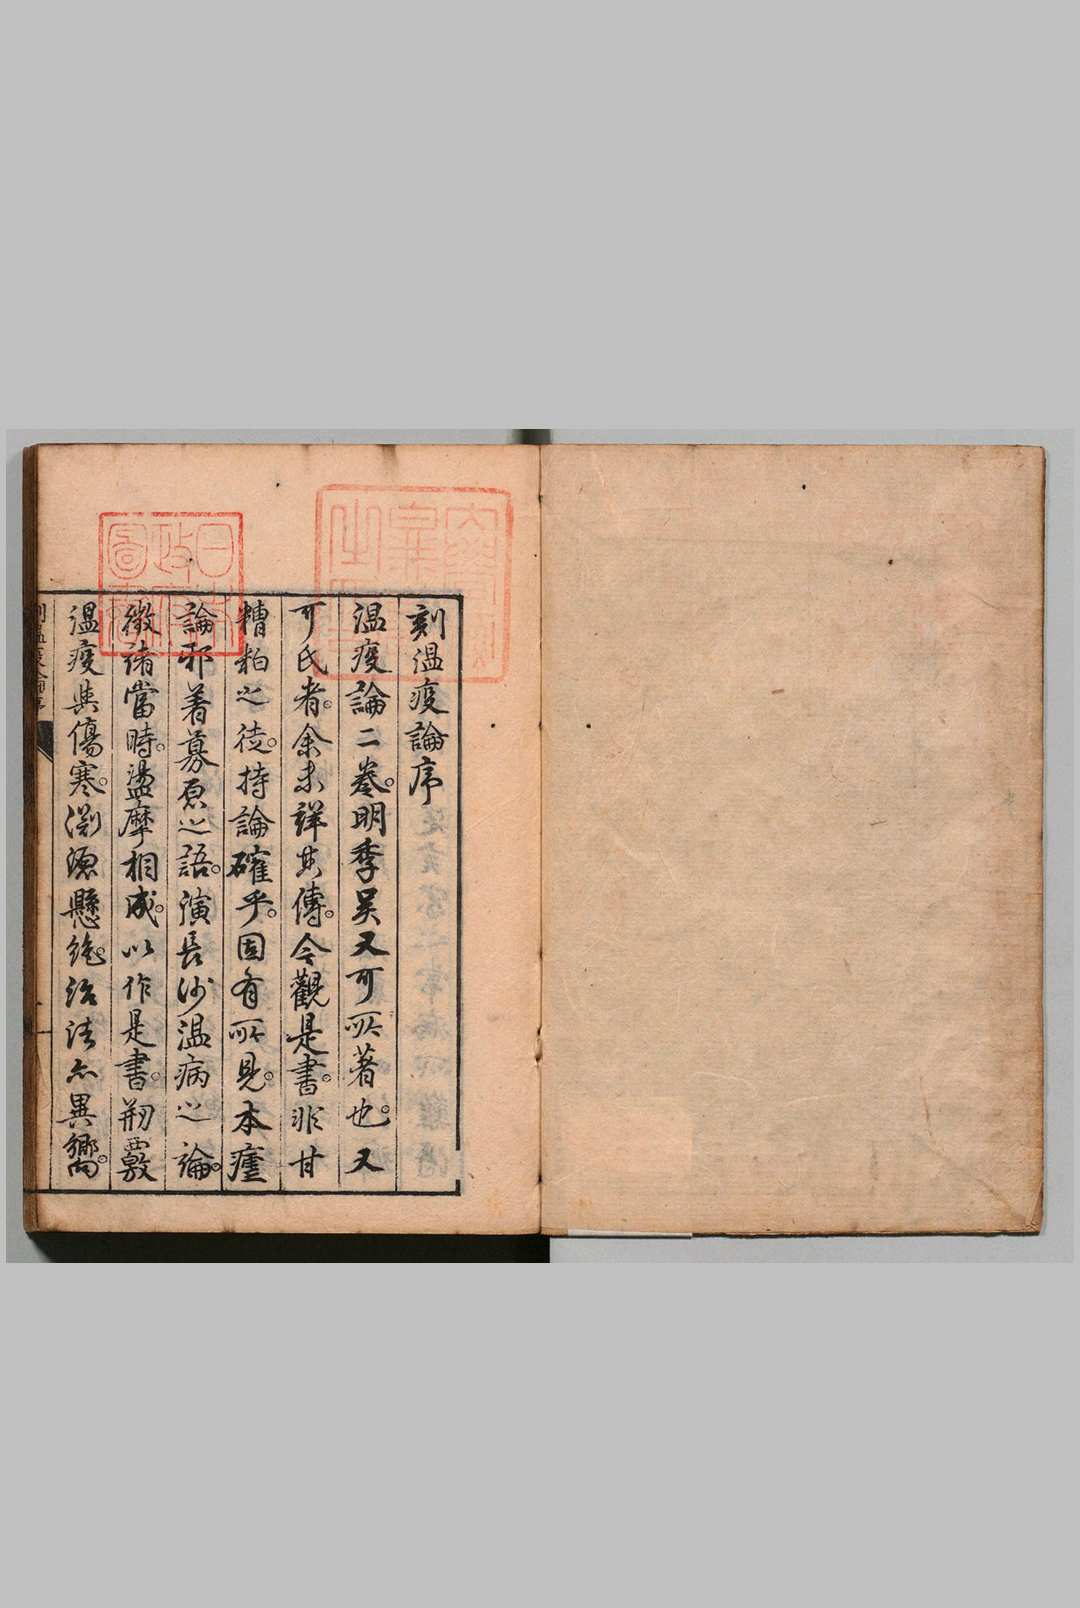 刻温疫論序
温疫論二卷。明季吴又可所著也。又
可氏者。余未詳其傳。今觀是書。非甘
糟粕之徒。持論確乎。固有所見。本瘧
論邪着募原之語。演長沙温病之論。
徵諸當時。盪摩相成。以作是書。剏覈
温疫與傷寒。淵源懸絶。治法亦異嚮。
日本
政府
圖書